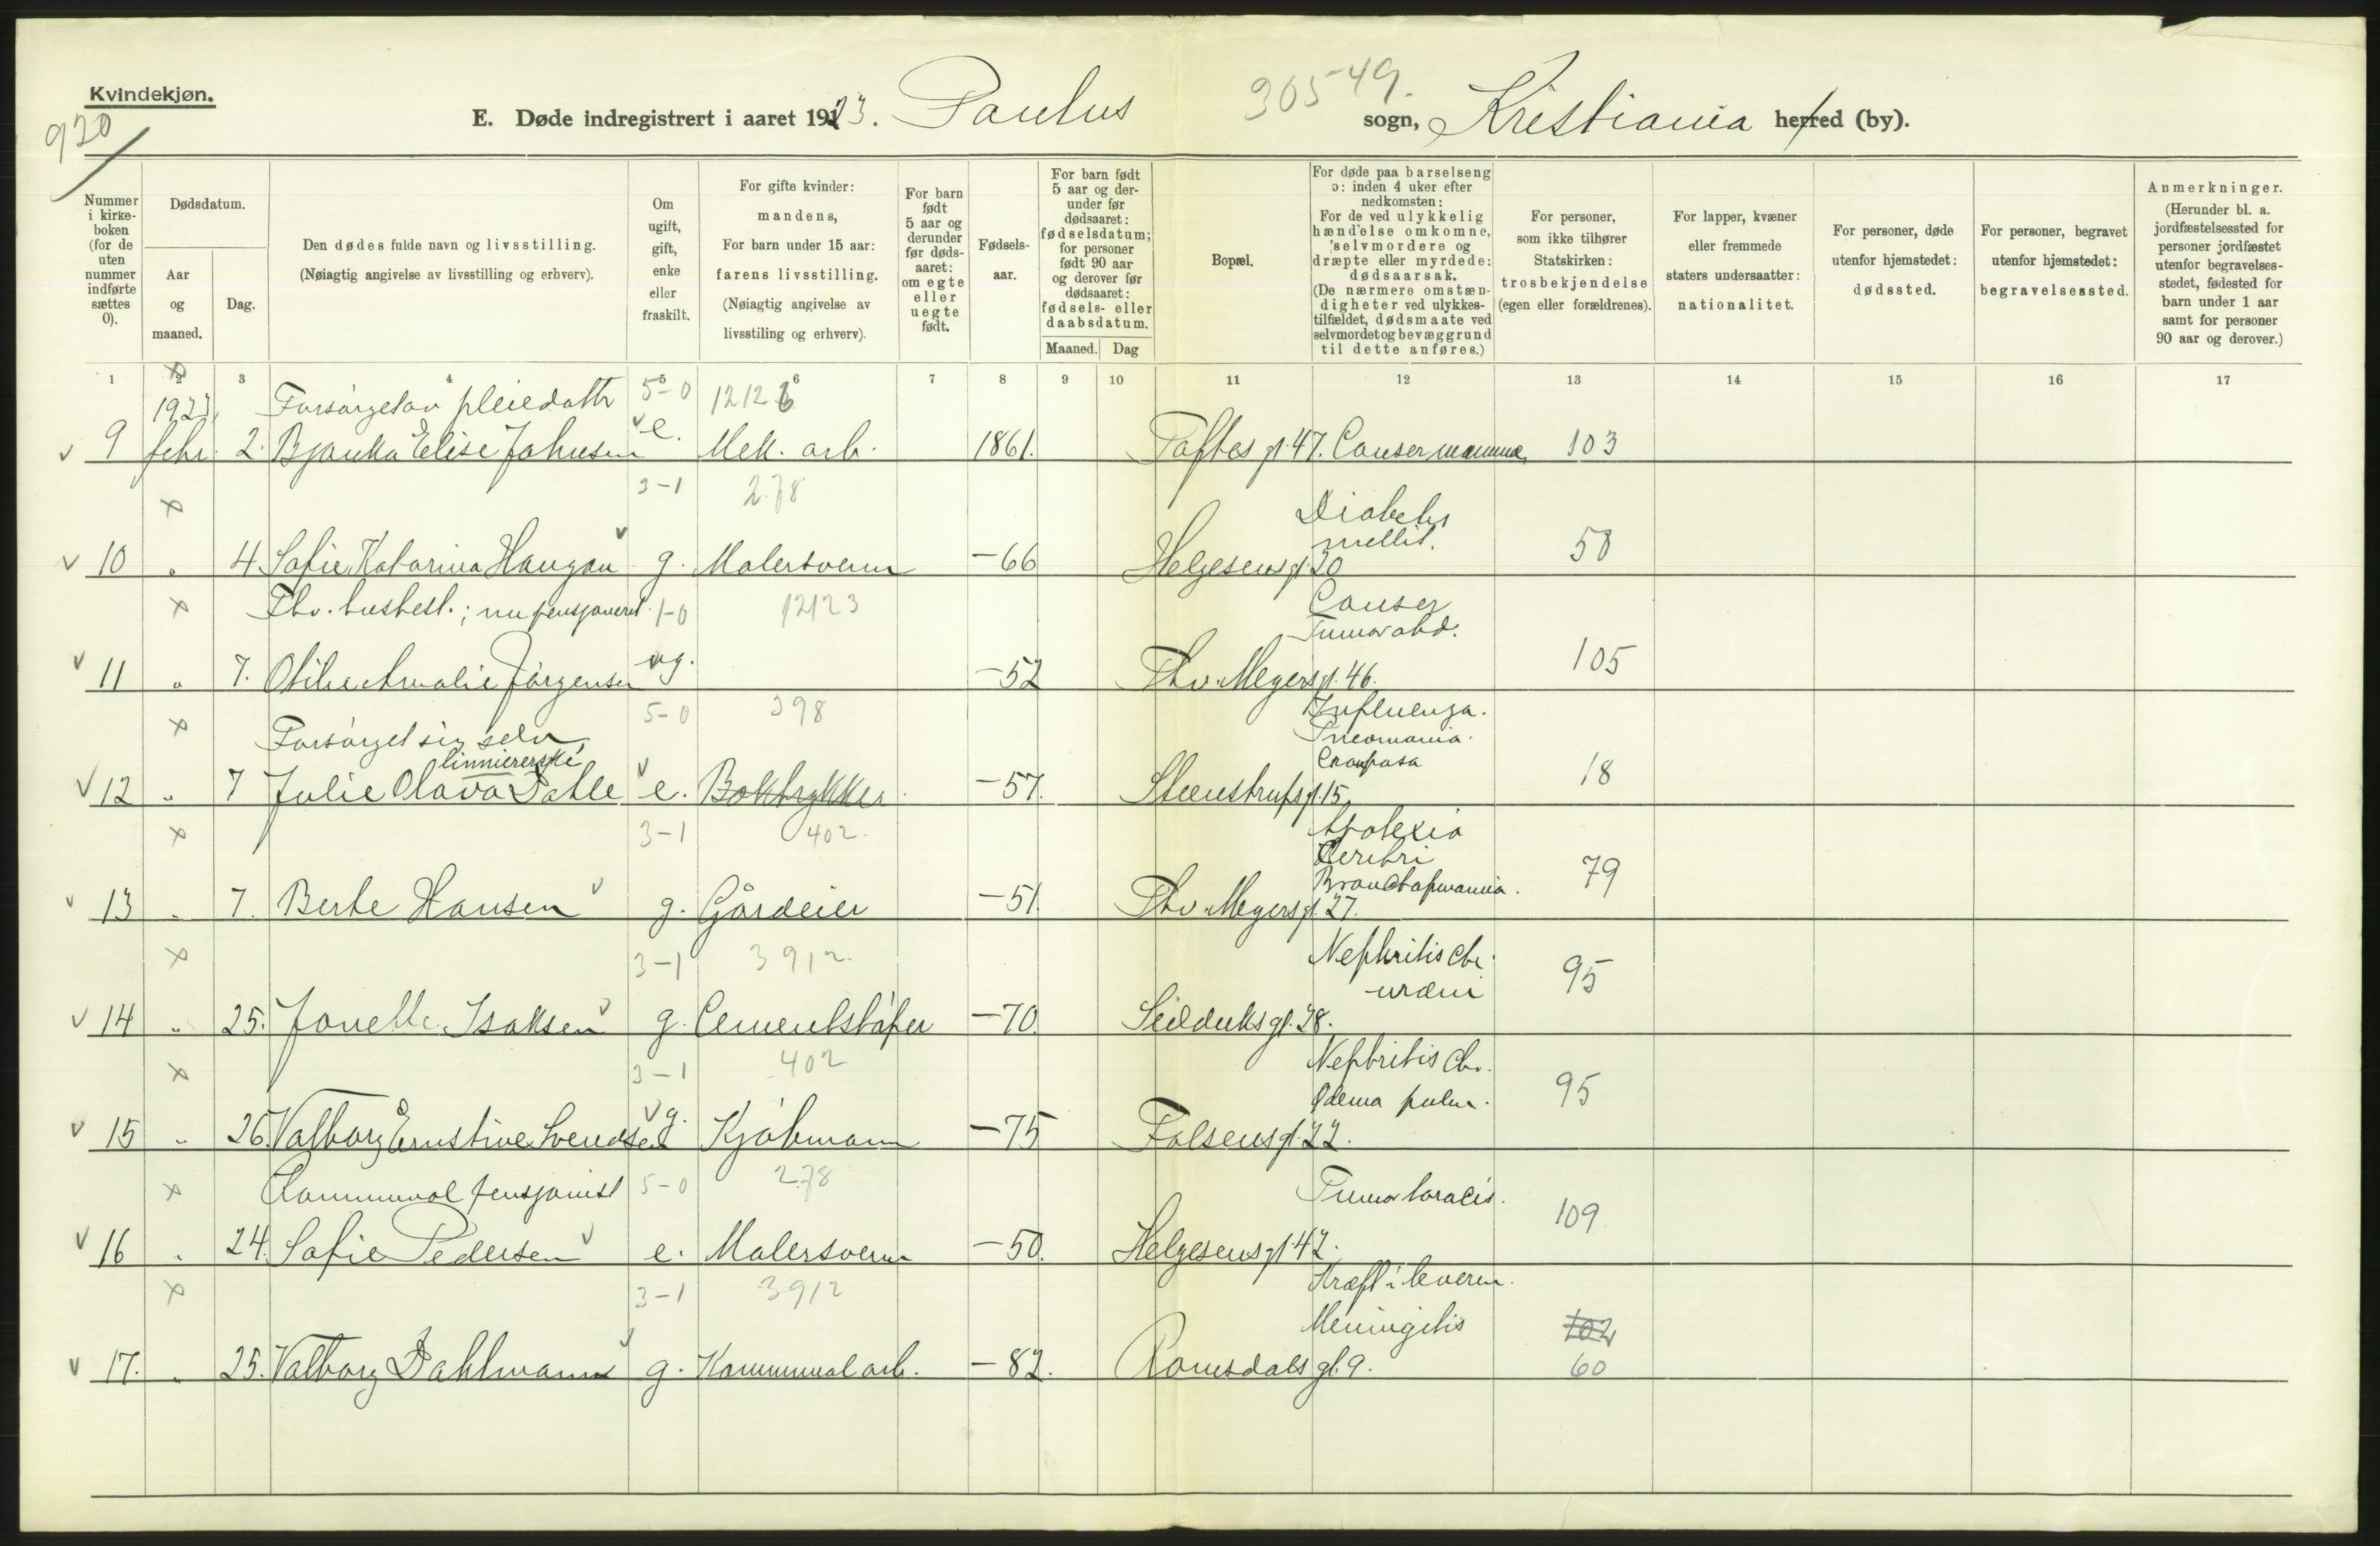 Kvindekjøn.
920
E. Døde indregistrert i aaret 1923. Paulus sogn, Kristiania herred (by).
30549.
Nummer i kirke-boken (for de uten nummer indførte sættes 0).
Dødsdatum.
Aar og maaned.
Dag.
Den dødes fulde navn og livsstilling.
(Nøiagtig angivelse av livsstilling og erhverv).
Om ugift, gift, enke eller fraskilt.
For gifte kvinder: mandens,
For barn under 15 aar: farens livsstilling.
(Nøiagtig angivelse av livsstiling og erhverv).
For barn født 5 aar og derunder før døds-aaret: om egte eller uegte født.
Fødsels-aar.
For barn født 5 aar og der-under før dødsaaret: fødselsdatum; for personer født 90 aar og derover før dødsaaret: fødsels- eller daabsdatum.
Maaned. Dag
Bopæl.
For døde paa barselseng ɔ: inden 4 uker efter nedkomsten:
For de ved ulykkelig hændelse omkomne, selvmordere og dræpte eller myrdede: dødsaarsak.
(De nærmere omstæn-digheter ved ulykkes-tilfældet, dødsmaate ved selvmordet og bevæggrund til dette anføres.)
For personer, som ikke tilhører Statskirken: trosbekjendelse (egen eller forældrenes).
For lapper, kvæner eller fremmede staters undersaatter: nationalitet.
For personer, døde utenfor hjemstedet: dødssted.
For personer, begravet utenfor hjemstedet: begravelsessted.
Anmerkninger.
(Herunder bl. a. jordfæstelsessted for personer jordfæstet utenfor begravelses-stedet, fødested for barn under 1 aar samt for personer 90 aar og derover.)
1 2 3 4 5 6 7 8 9 10 11 12 13 14 15 16 17
1923 Forsørget av pleiedattr 5-0 12126
9 febr. 2. Bjanka Elise Johnsen e. Mek. arb. 1861. Toftes gt. 47. Cancer mamma 103
x 3-1 278 Diabetes mellit.
10 " 4 Sofie Katarina Haugan g. Malersvenn -66 Helgesens gt. 20 58
x Fhv. busbest.; nu pensjoneret. 1-0 12123 Cancer Tumor abd.
11 " 7. Otilie Amalie Jørgensen ug. -52 Thv. Meyers gt. 46. 105
x Forsørget sig selv, linniererske 5-0 398 Influenza. Pneomonia. Crouposa
12 " 7 Julie Olava Dahle e. Boktrykker -57. Steenstrups gt. 15 18
x 3-1 402. Apolexia Cerebri Bronchopnemonia.
13 " 7. Berte Hansen g. Gårdeier -51. Thv. Meyers gt. 27. 79
x 3-1 3912. Nephritis chr. uræmi
14 " 25. Jonette Isaksen g. Cementstøper -70. Seilduks gt. 28. 95
x 3-1 402 Nephritis Chr. Ødema pulm.
15 " 26. Valborg Ernstine Svendsen g. Kjøbmann -75 Falsens gt. 22. 95
x Kommunal pensjonist 5-0 278 Tumor toracis.
16 " 24. Sofie Pedersen e. Malersvenn -50. Helgesens gt. 42. 109
x 3-1 3912 Kræft i leveren. Meningitis 102
17. " 25. Valborg Dahlmann g. Kommunal arb. -82. Romsdals gt. 9. 60